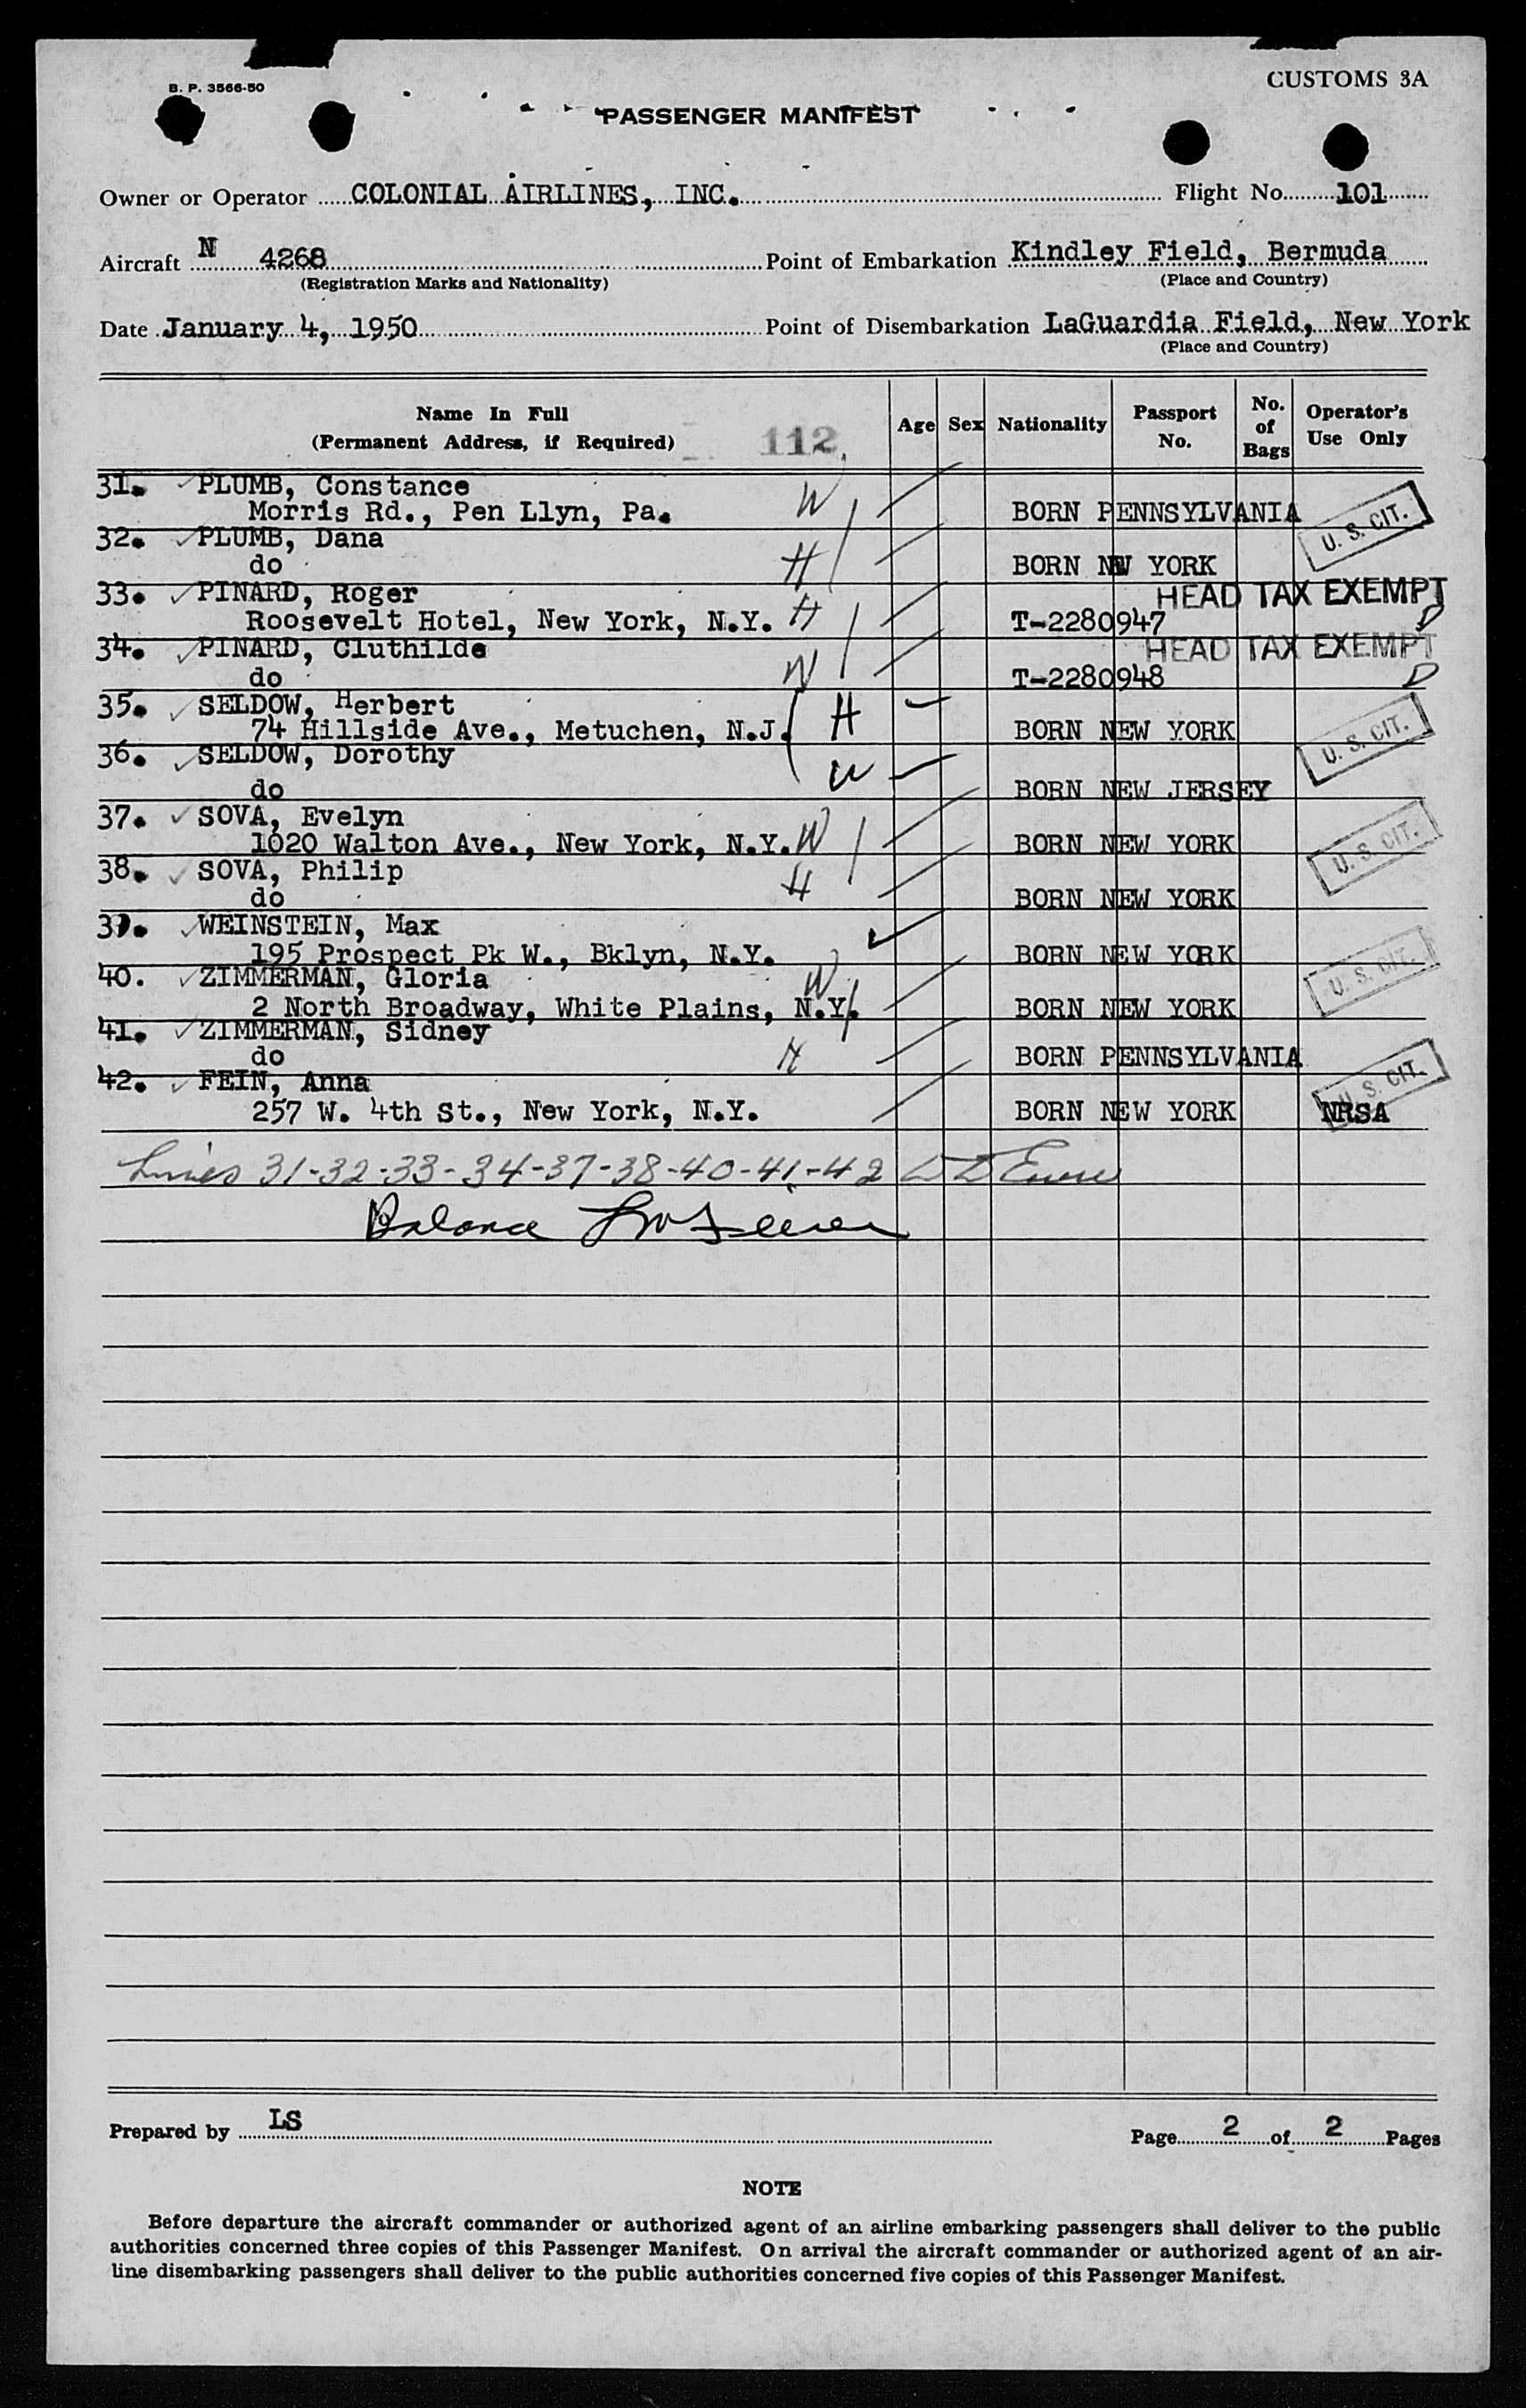 B. P. 3566-50
CUSTOMS 3A
PASSENGER MANIFEST
Owner or Operator COLONIAL AIRLINES, INC. Flight No. 101
Aircraft N 4268 Point of Embarkation Kindley Field, Bermuda
(Registration Marks and Nationality) (Place and Country)
Date January 4, 1950 Point of Disembarkation LaGuardia Field, New York
(Place and Country)
Name In Full (Permanent Address, if Required) 112 Age Sex Nationality Passport No. No. of Bags Operator's Use Only
31. PLUMB, Constance
Morris Rd., Pen Llyn, Pa. W BORN PENNSYLVANIA U. S. CIT.
32. PLUMB, Dana
do H BORN NEW YORK
33. PINARD, Roger HEAD TAX EXEMPT
Roosevelt Hotel, New York, N.Y. H T-2280947 D
34. PINARD, Cluthilde HEAD TAX EXEMPT
do W T-2280948 D
35. SELDOW, Herbert
74 Hillside Ave., Metuchen, N.J. H BORN NEW YORK U. S. CIT.
36. SELDOW, Dorothy
do W BORN NEW JERSEY
37. SOVA, Evelyn
1020 Walton Ave., New York, N.Y. W BORN NEW YORK U. S. CIT.
38. SOVA, Philip
do H BORN NEW YORK
39. WEINSTEIN, Max
195 Prospect Pk W., Bklyn, N.Y. BORN NEW YORK U. S. CIT.
40. ZIMMERMAN, Gloria
2 North Broadway, White Plains, N.Y. W BORN NEW YORK
41. ZIMMERMAN, Sidney
do H BORN PENNSYLVANIA U. S. CIT.
42. FEIN, Anna
257 W. 4th St., New York, N.Y. BORN NEW YORK NRSA
Lines 31-32-33-34-37-38-40-41-42
Balance
Prepared by LS Page 2 of 2 Pages
NOTE
Before departure the aircraft commander or authorized agent of an airline embarking passengers shall deliver to the public
authorities concerned three copies of this Passenger Manifest. On arrival the aircraft commander or authorized agent of an air-
line disembarking passengers shall deliver to the public authorities concerned five copies of this Passenger Manifest.